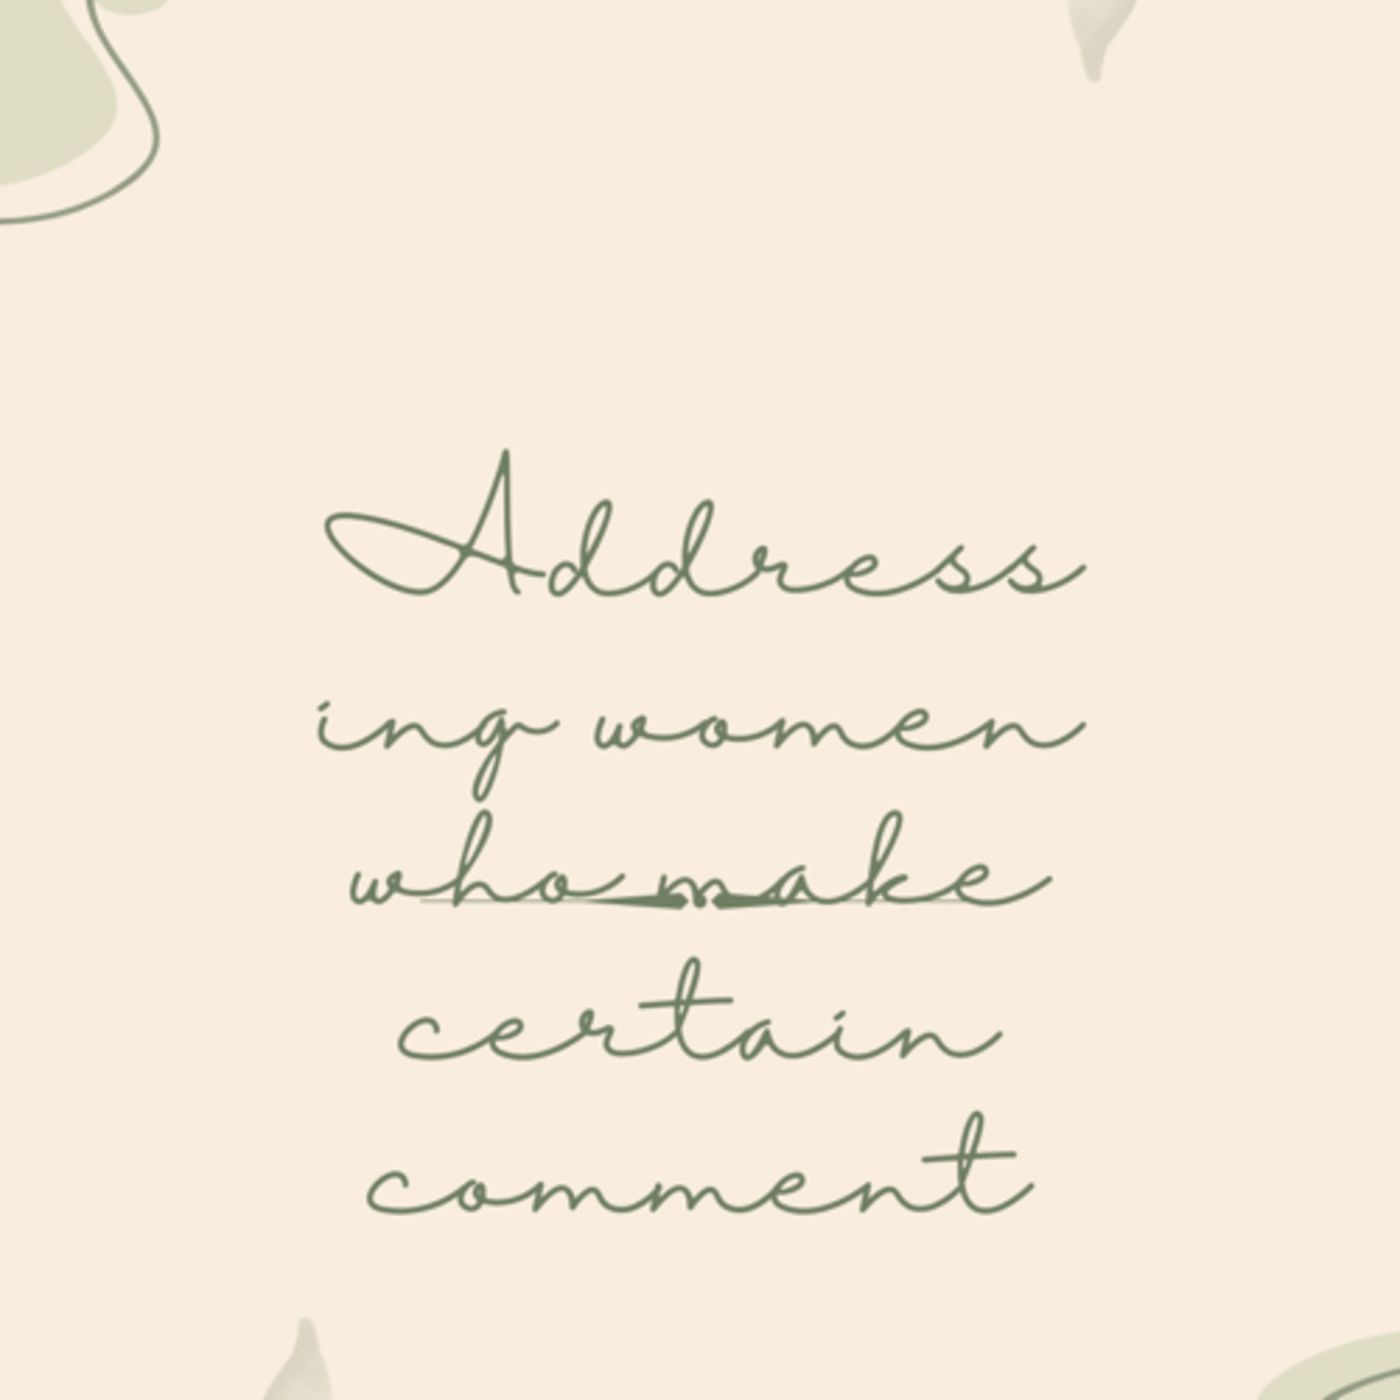 Address
ing women
who make
certain
comment